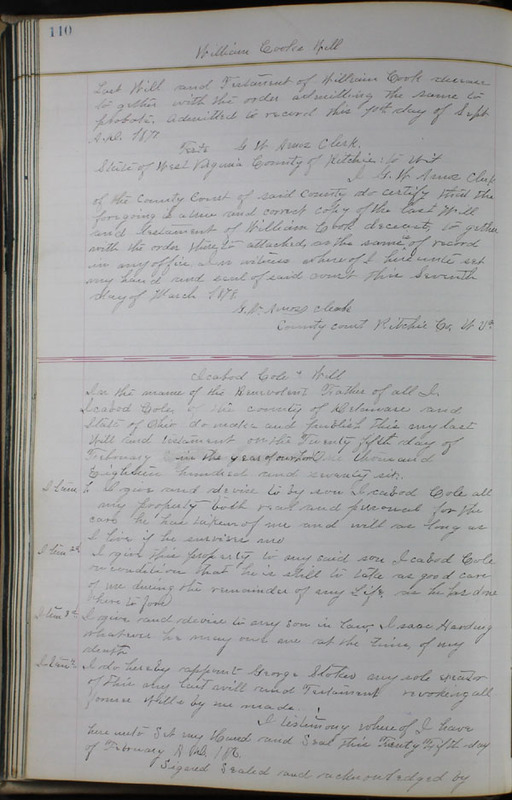 110
William Cooks Will
Last Will and Testament of William Cook deceased
to gether with the order admitting the same to
probate. Admitted to record this day of Sept
A.D. 187
Teste G. W. Amos Clerk.
State of West Virginia County of Ritchie; to wit
I G. W. Amos Clerk
of the County Court of said County do certify that the
forgoing is a true and correct copy of the last Will
and testament of William Cook deceased, to gether
with the order thereto attached, as the same of record
in my office. In witness whereof I hereunto set
my hand and seal of said court this Seventh
day of March 187
G. W. Amos Clerk
County court Ritchie Co, W. Va
Icabod Cole's Will
In the name of the Benevolent Father of all I
Icabod Cole, of the county of Delaware and
State of Ohio do make and publish this my last
Will and testament on the Twenty fifth day of
February in the year of our Lord One thousand
Eighteen hundred and seventy six.
Item I give and devise to my son Icabod Cole all
my property both real and personal for the
care he has taken of me and will as long as
I live if he survives me
Item 2nd I give this property to my said son Icabod Cole
on condition that he is still to take as good care
of me during the remainder of my Life, as he has done
here to fore
Item 3rd I give and devise to my son in law, Isaac Harding
whatever he may owe me at the time of my
death
Item I do hereby appoint George Stokes my sole
of this my last will and Testament revoking all
former wills by me made.
I testimony where of I have
here unto Set my Hand and Seal this Twenty fifth day
of February A.D. 187
Signed Sealed and acknowledged by